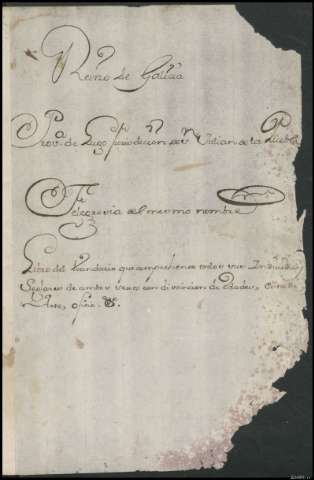 Reino de Galicia
Prov.ª de Lugo Jurisdicion de Sn Julian de la Puebla
Felegresia del mesmo nombre
Libro del que comprehende todos sus Individuos
Seglares de ambos sexos con distincion de edades,
Artes, oficios &.